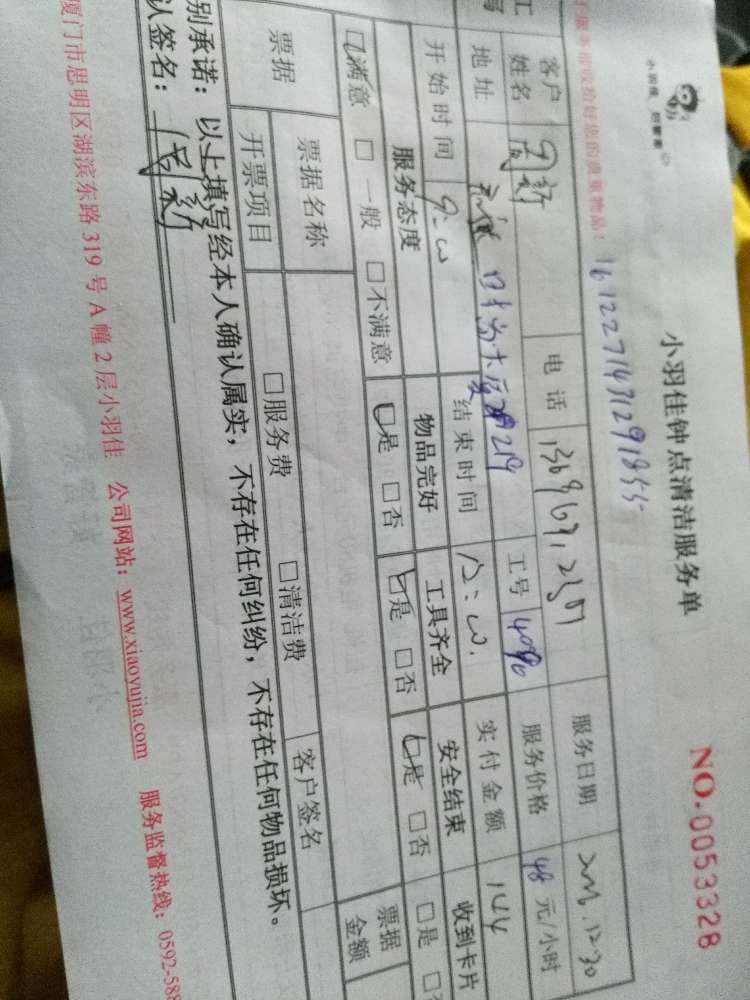 小羽佳 的管家
小羽佳钟点清洁服务单
NO.0053328
1612271431291855
服务前请收拾好您的贵重物品!
客户姓名 电话 服务日期 2016.12.30
地址 工号 4090 服务价格 48 元/小时
开始时间 9:00 结束时间 12:00. 实付金额 144
服务态度 物品完好 工具齐全 安全结束 收到卡片
☑满意 □一般 □不满意 ☑是 □否 ☑是 □否 ☑是 □否 □是
票据 票据名称 □服务费 □清洁费 客户签名 票据金额
开票项目
别承诺:以上填写经本人确认属实,不存在任何纠纷,不存在任何物品损坏。
认签名:
厦门市思明区湖滨东路319号A幢2层小羽佳 公司网站:www.xiaoyujia.com 服务监督热线:0592-588